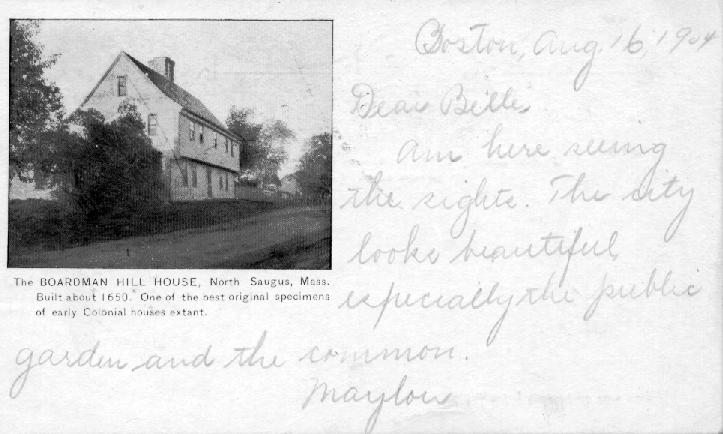 Boston, Aug. 16, 1904
Dear Bille,
Am here seeing
the sights. The city
looks beautiful
especially the public
garden and the common.
Maylou
The BOARDMAN HILL HOUSE, North Saugus, Mass.
Built about 1650. One of the best original specimens
of early Colonial houses extant.